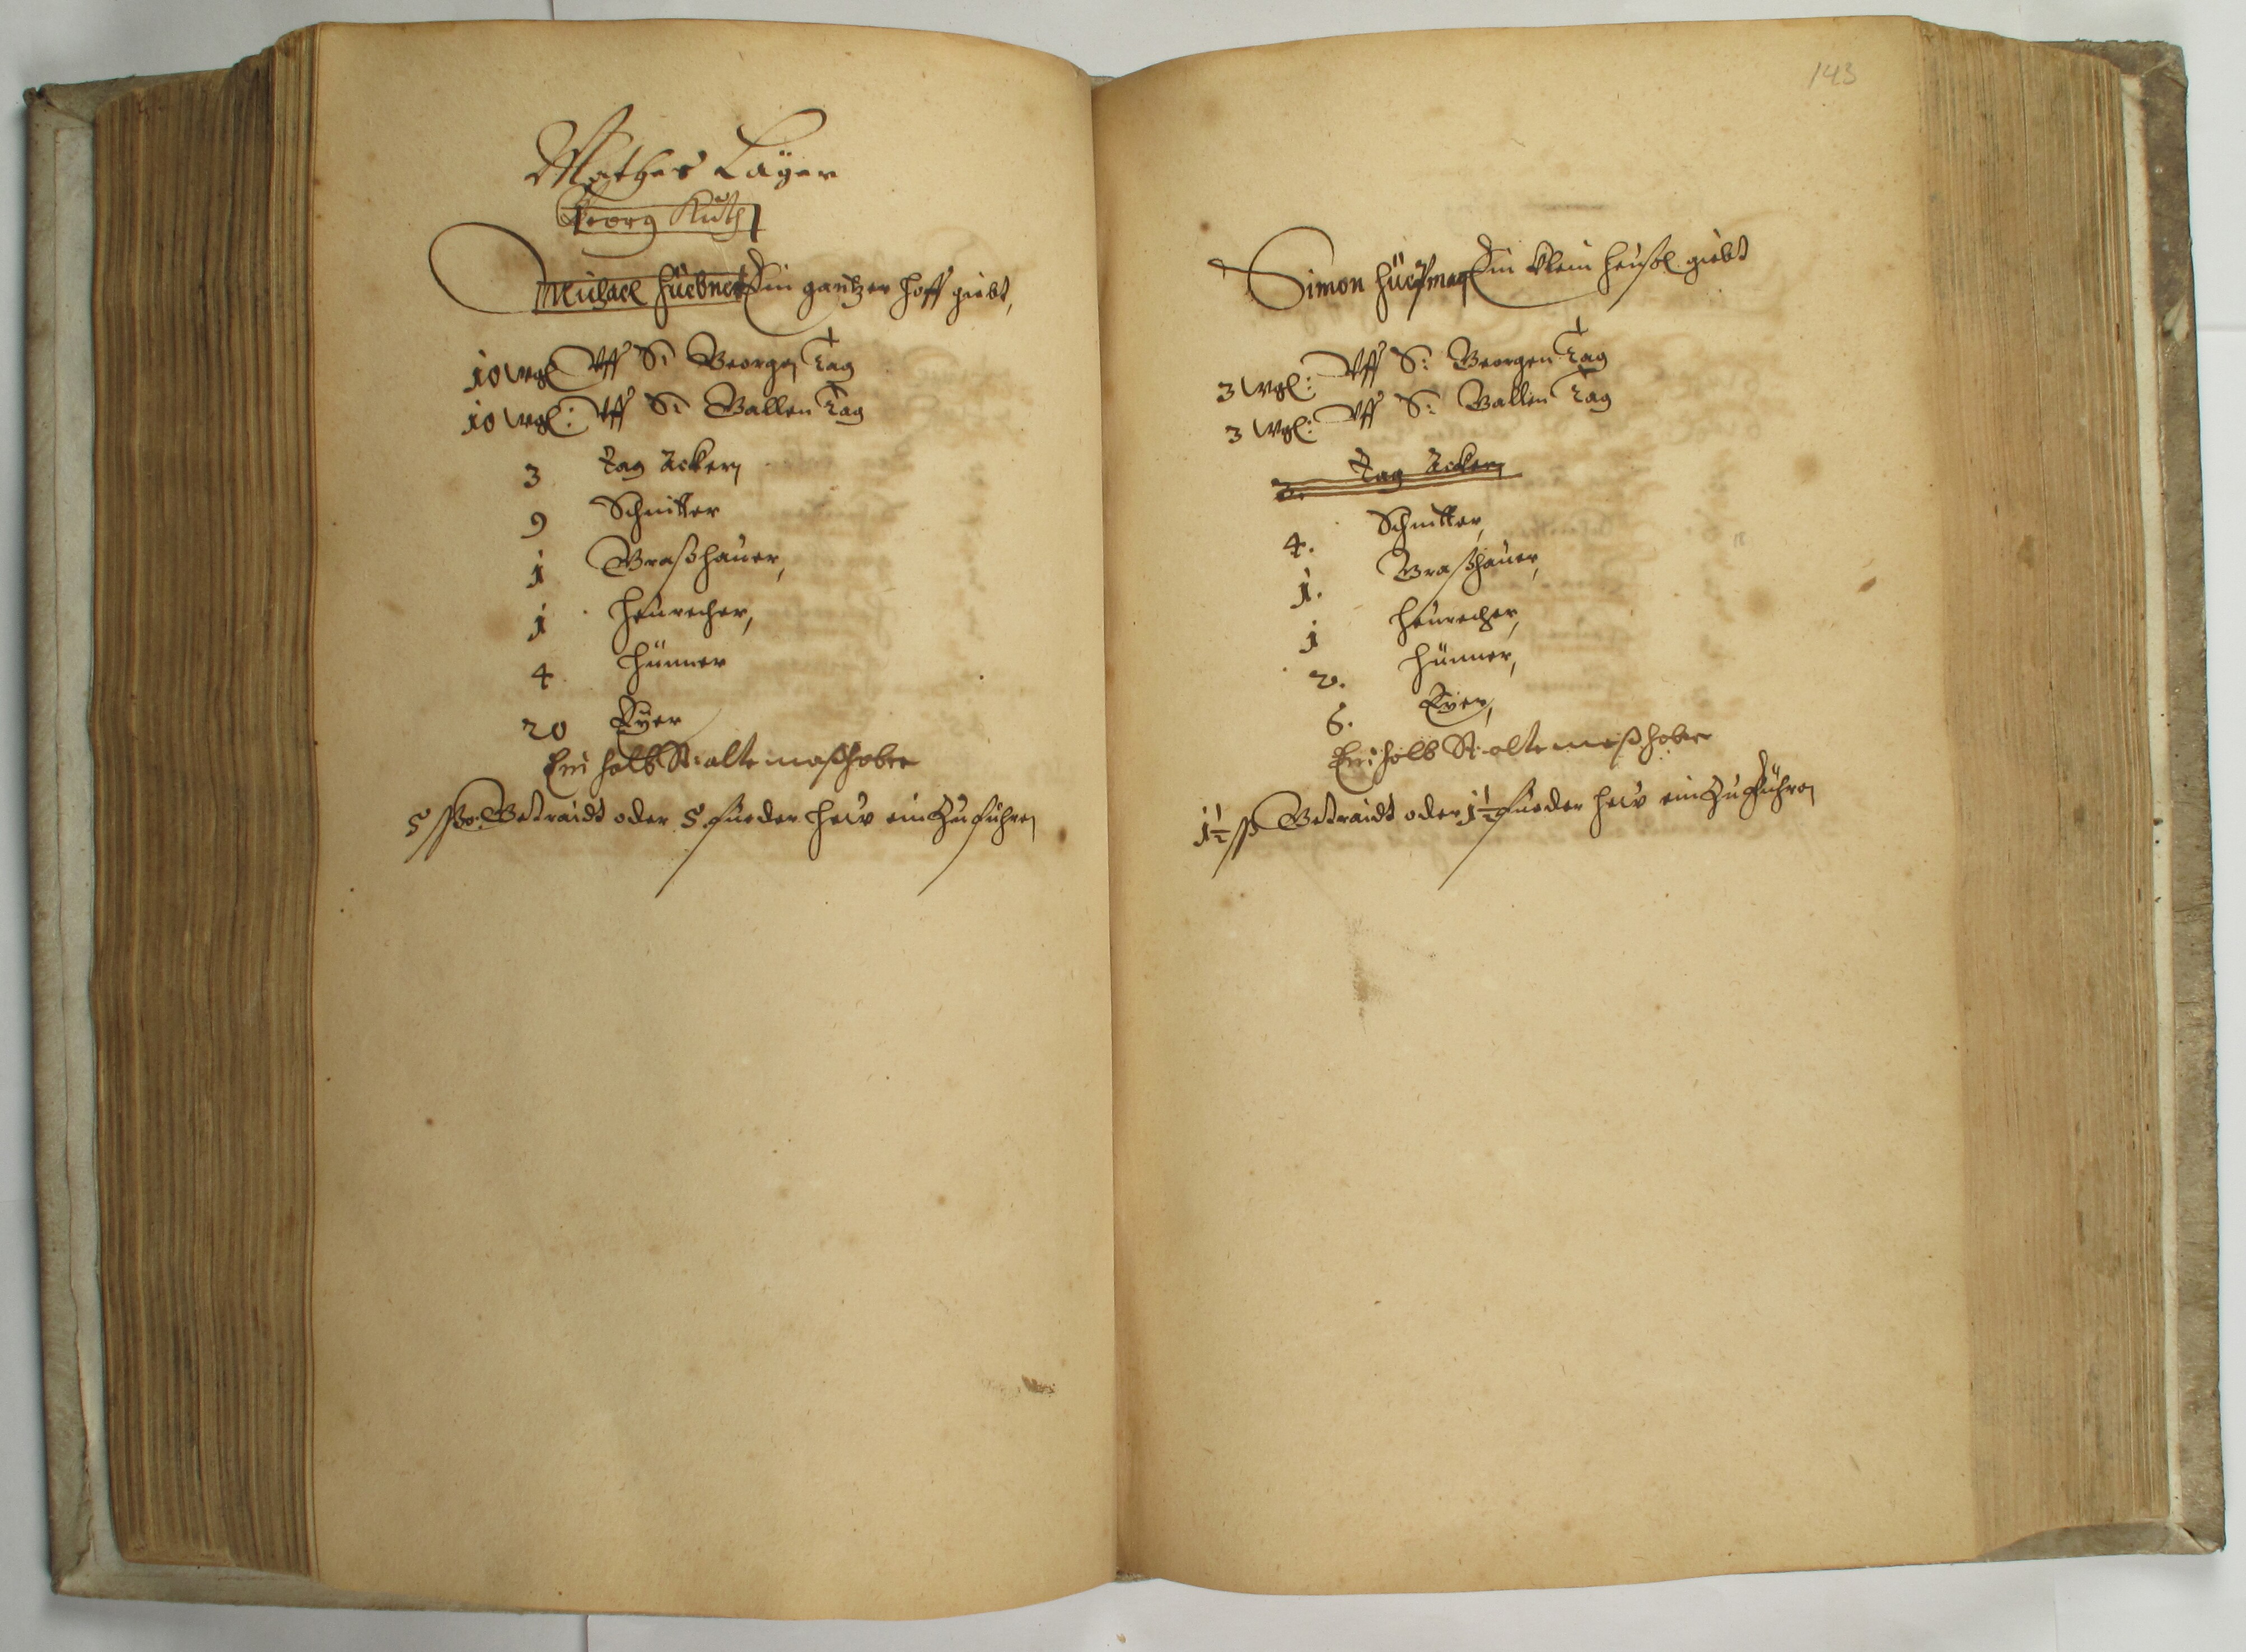 Mathes Läyer
Georg Kuth
Michael Hüebner Ein gantzer hoff giebt,
10 wgl Vff S: Georgen Tag
10 wgl: Vff S: Gallen Tag
3 tag Ackern
9 Schnitter
1 Graßhauer,
1 Heurecher,
4 Hünner
20 Eyer
Ein halb St: alte maß haber
5 ßo: Getraidt oder 5 fueder hew ein Zuführen
143
Simon Ein klein heüsl giebt
3 wgl: Vff S: Georgen Tag
3 wgl: Vff S: Gallen Tag
3. tag Ackern
4. Schnitter,
1. Graßhauer,
1 Heurecher,
2. Hünner,
6. Eyer,
Ein halb St: alte maß haber
1½ ß Getraidt oder 1½ fueder hew ein Zu führen